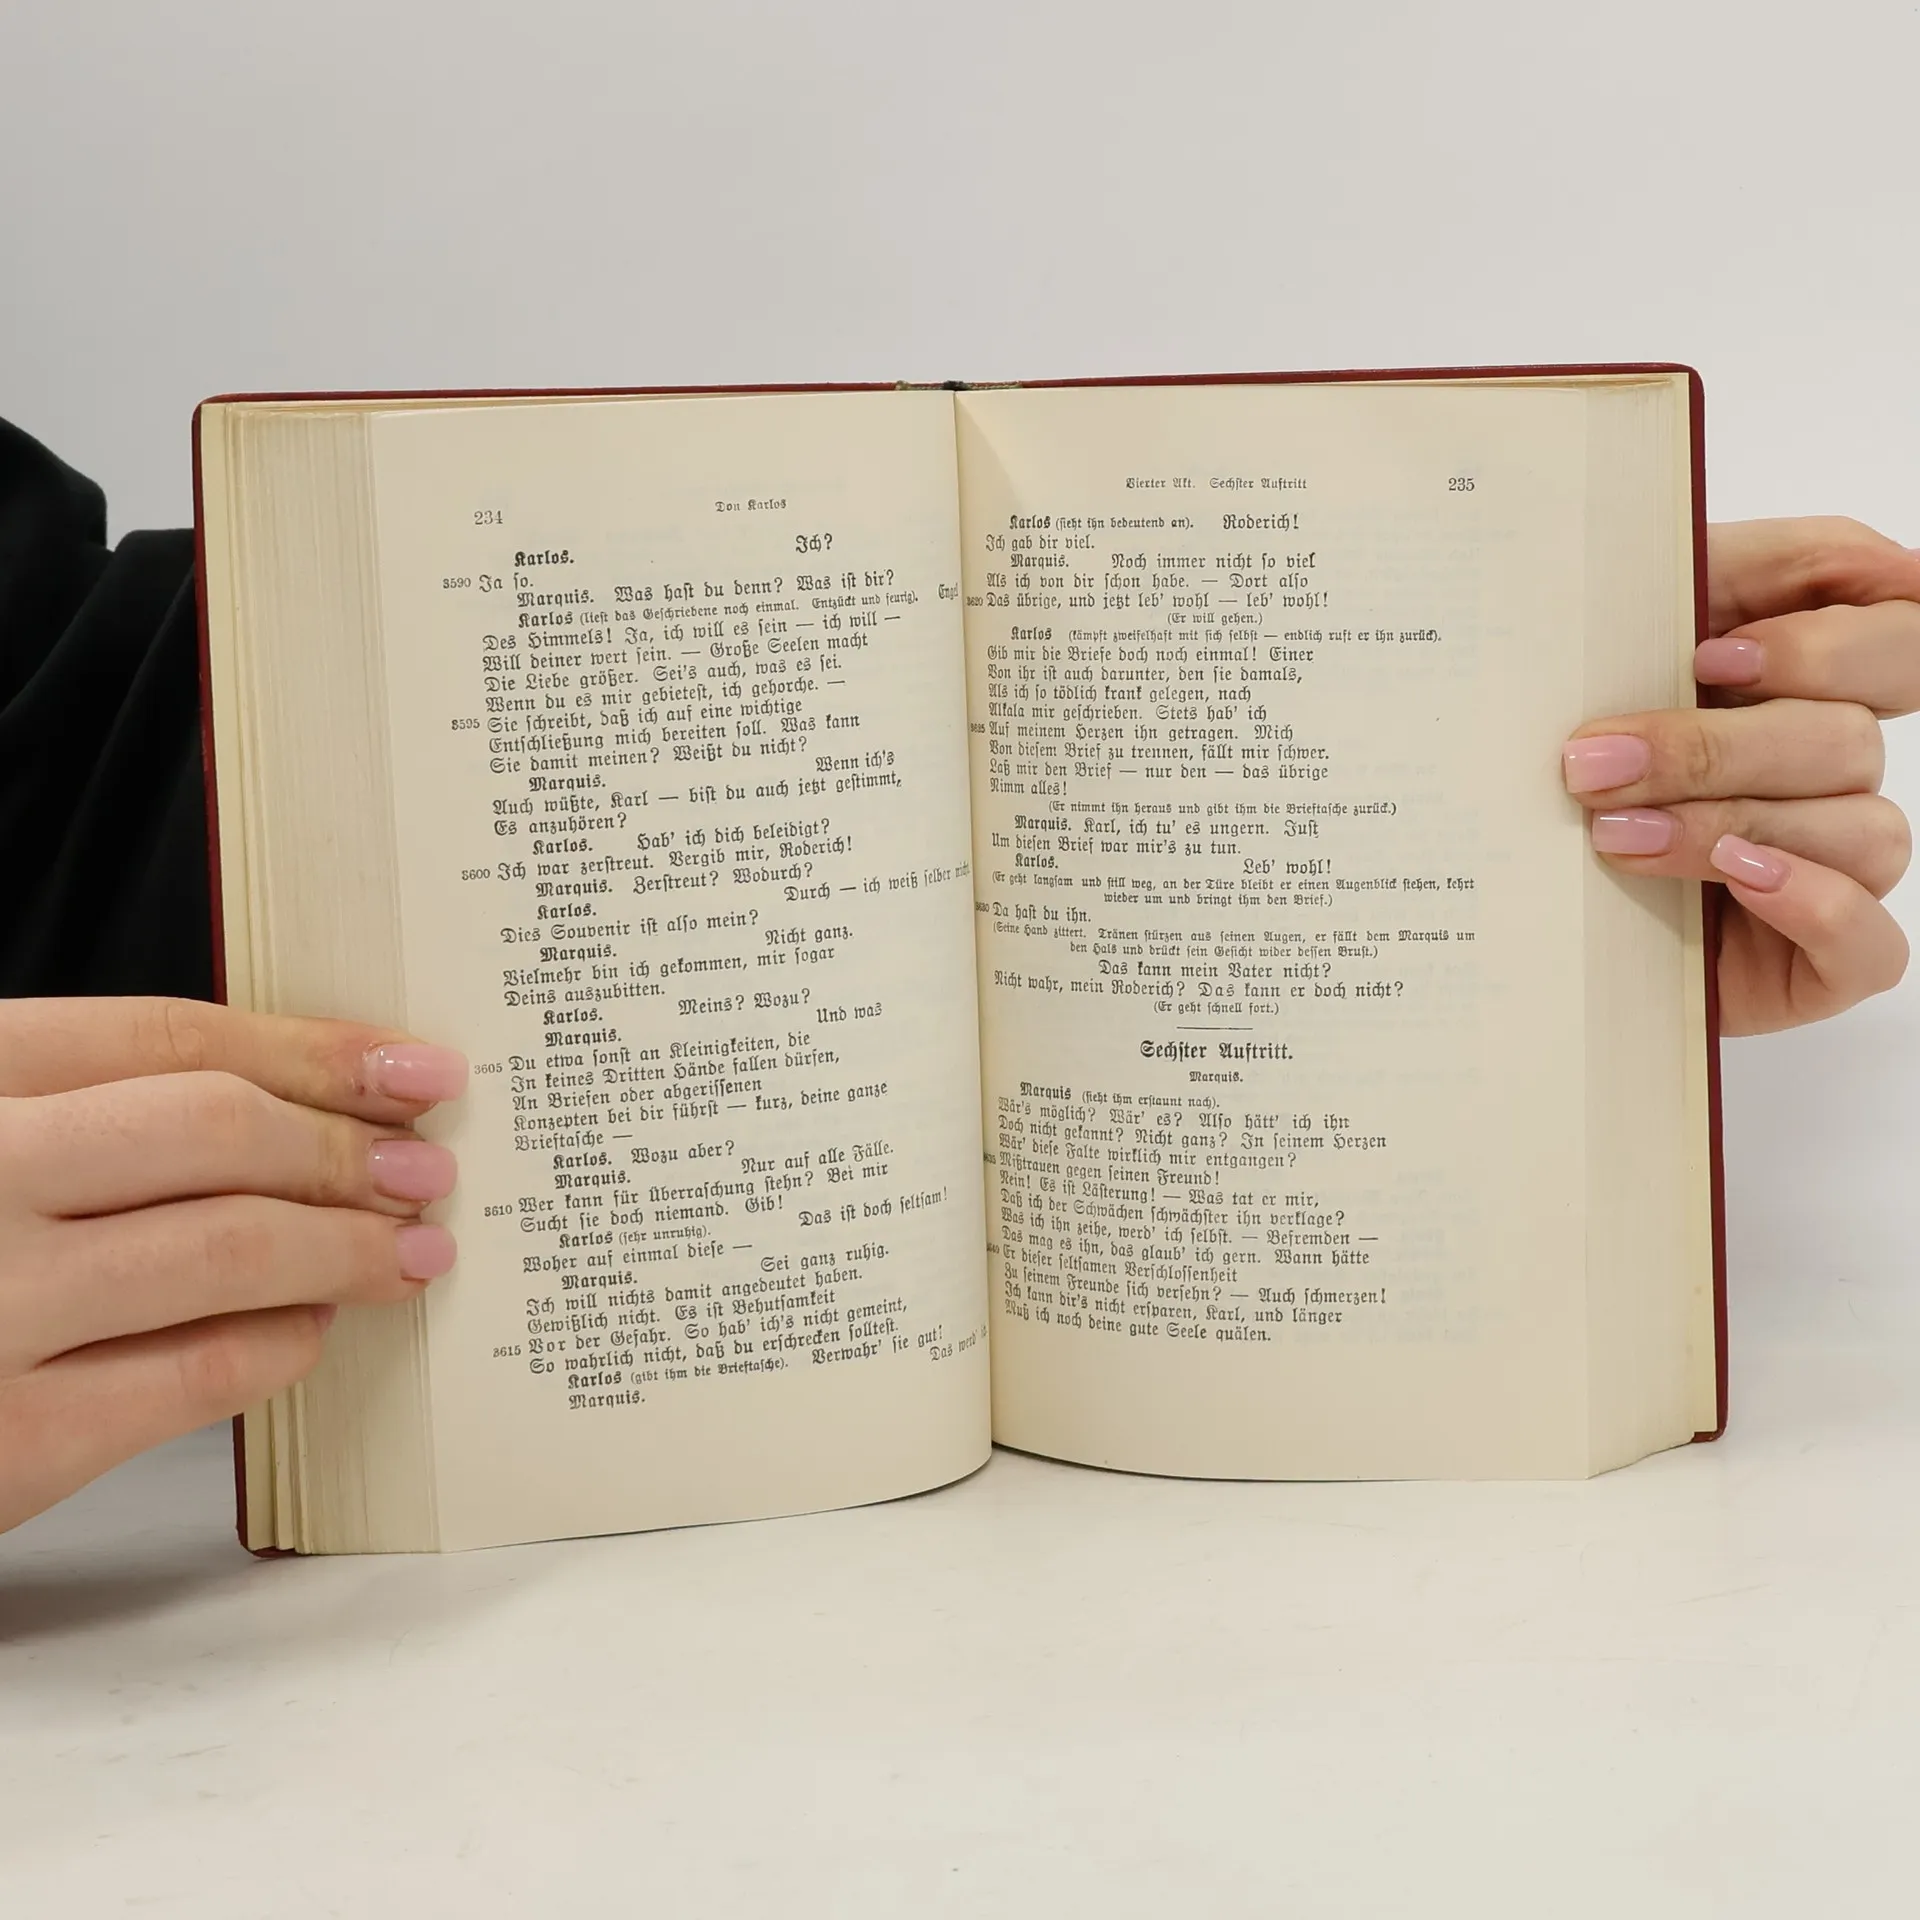 234
Don Karlos
Ich?
Karlos.
3590 Ja so.
Marquis. Was hast du denn? Was ist dir?
Karlos (liest das Geschriebene noch einmal. Entzückt und feurig). Engel
Des Himmels! Ja, ich will es sein — ich will —
Will deiner wert sein. — Große Seelen macht
Die Liebe größer. Sei's auch, was es sei.
Wenn du es mir gebietest, ich gehorche. —
3595 Sie schreibt, daß ich auf eine wichtige
Entschließung mich bereiten soll. Was kann
Sie damit meinen? Weißt du nicht?
Marquis. Wenn ich's
Auch wüßte, Karl — bist du auch jetzt gestimmt,
Es anzuhören?
Karlos. Hab' ich dich beleidigt?
3600 Ich war zerstreut. Vergib mir, Roderich!
Marquis. Zerstreut? Wodurch?
Karlos. Durch — ich weiß selber nicht.
Dies Souvenir ist also mein?
Marquis. Nicht ganz.
Vielmehr bin ich gekommen, mir sogar
Deins auszubitten.
Karlos. Meins? Wozu?
Marquis. Und was
3605 Du etwa sonst an Kleinigkeiten, die
In keines Dritten Hände fallen dürfen,
An Briefen oder abgerissenen
Konzepten bei dir führst — kurz, deine ganze
Brieftasche —
Karlos. Wozu aber?
Marquis. Nur auf alle Fälle.
3610 Wer kann für Überraschung stehn? Bei mir
Sucht sie doch niemand. Gib!
Karlos (sehr unruhig). Das ist doch seltsam!
Woher auf einmal diese —
Marquis. Sei ganz ruhig.
Ich will nichts damit angedeutet haben.
Gewißlich nicht. Es ist Behutsamkeit
3615 Vor der Gefahr. So hab' ich's nicht gemeint,
So wahrlich nicht, daß du erschrecken solltest.
Karlos (gibt ihm die Brieftasche). Verwahr' sie gut!
Marquis. Das werd' ich.
Vierter Akt. Sechster Auftritt
235
Karlos (sieht ihn bedeutend an). Roderich!
Ich gab dir viel.
Marquis. Noch immer nicht so viel
Als ich von dir schon habe. — Dort also
3620 Das übrige, und jetzt leb' wohl — leb' wohl!
(Er will gehen.)
Karlos (kämpft zweifelhaft mit sich selbst — endlich ruft er ihn zurück).
Gib mir die Briefe doch noch einmal! Einer
Von ihr ist auch darunter, den sie damals,
Als ich so tödlich krank gelegen, nach
Alkala mir geschrieben. Stets hab' ich
3625 Auf meinem Herzen ihn getragen. Mich
Von diesem Brief zu trennen, fällt mir schwer.
Laß mir den Brief — nur den — das übrige
Nimm alles!
(Er nimmt ihn heraus und gibt ihm die Brieftasche zurück.)
Marquis. Karl, ich tu' es ungern. Just
Um diesen Brief war mir's zu tun.
Karlos. Leb' wohl!
(Er geht langsam und still weg, an der Türe bleibt er einen Augenblick stehen, kehrt
wieder um und bringt ihm den Brief.)
3630 Da hast du ihn.
(Seine Hand zittert. Tränen stürzen aus seinen Augen, er fällt dem Marquis um
den Hals und drückt sein Gesicht wider dessen Brust.)
Das kann mein Vater nicht?
Nicht wahr, mein Roderich? Das kann er doch nicht?
(Er geht schnell fort.)
Sechster Auftritt.
Marquis.
Marquis (sieht ihm erstaunt nach).
Wär's möglich? Wär' es? Also hätt' ich ihn
Doch nicht gekannt? Nicht ganz? In seinem Herzen
Wär' diese Falte wirklich mir entgangen?
3635 Mißtrauen gegen seinen Freund!
Nein! Es ist Lästerung! — Was tat er mir,
Daß ich der Schwächen schwächster ihn verklage?
Was ich ihn zeihe, werd' ich selbst. — Befremden —
Das mag es ihn, das glaub' ich gern. Wann hätte
3640 Er dieser seltsamen Verschlossenheit
Zu seinem Freunde sich versehn? — Auch schmerzen!
Ich kann dir's nicht ersparen, Karl, und länger
Muß ich noch deine gute Seele quälen.